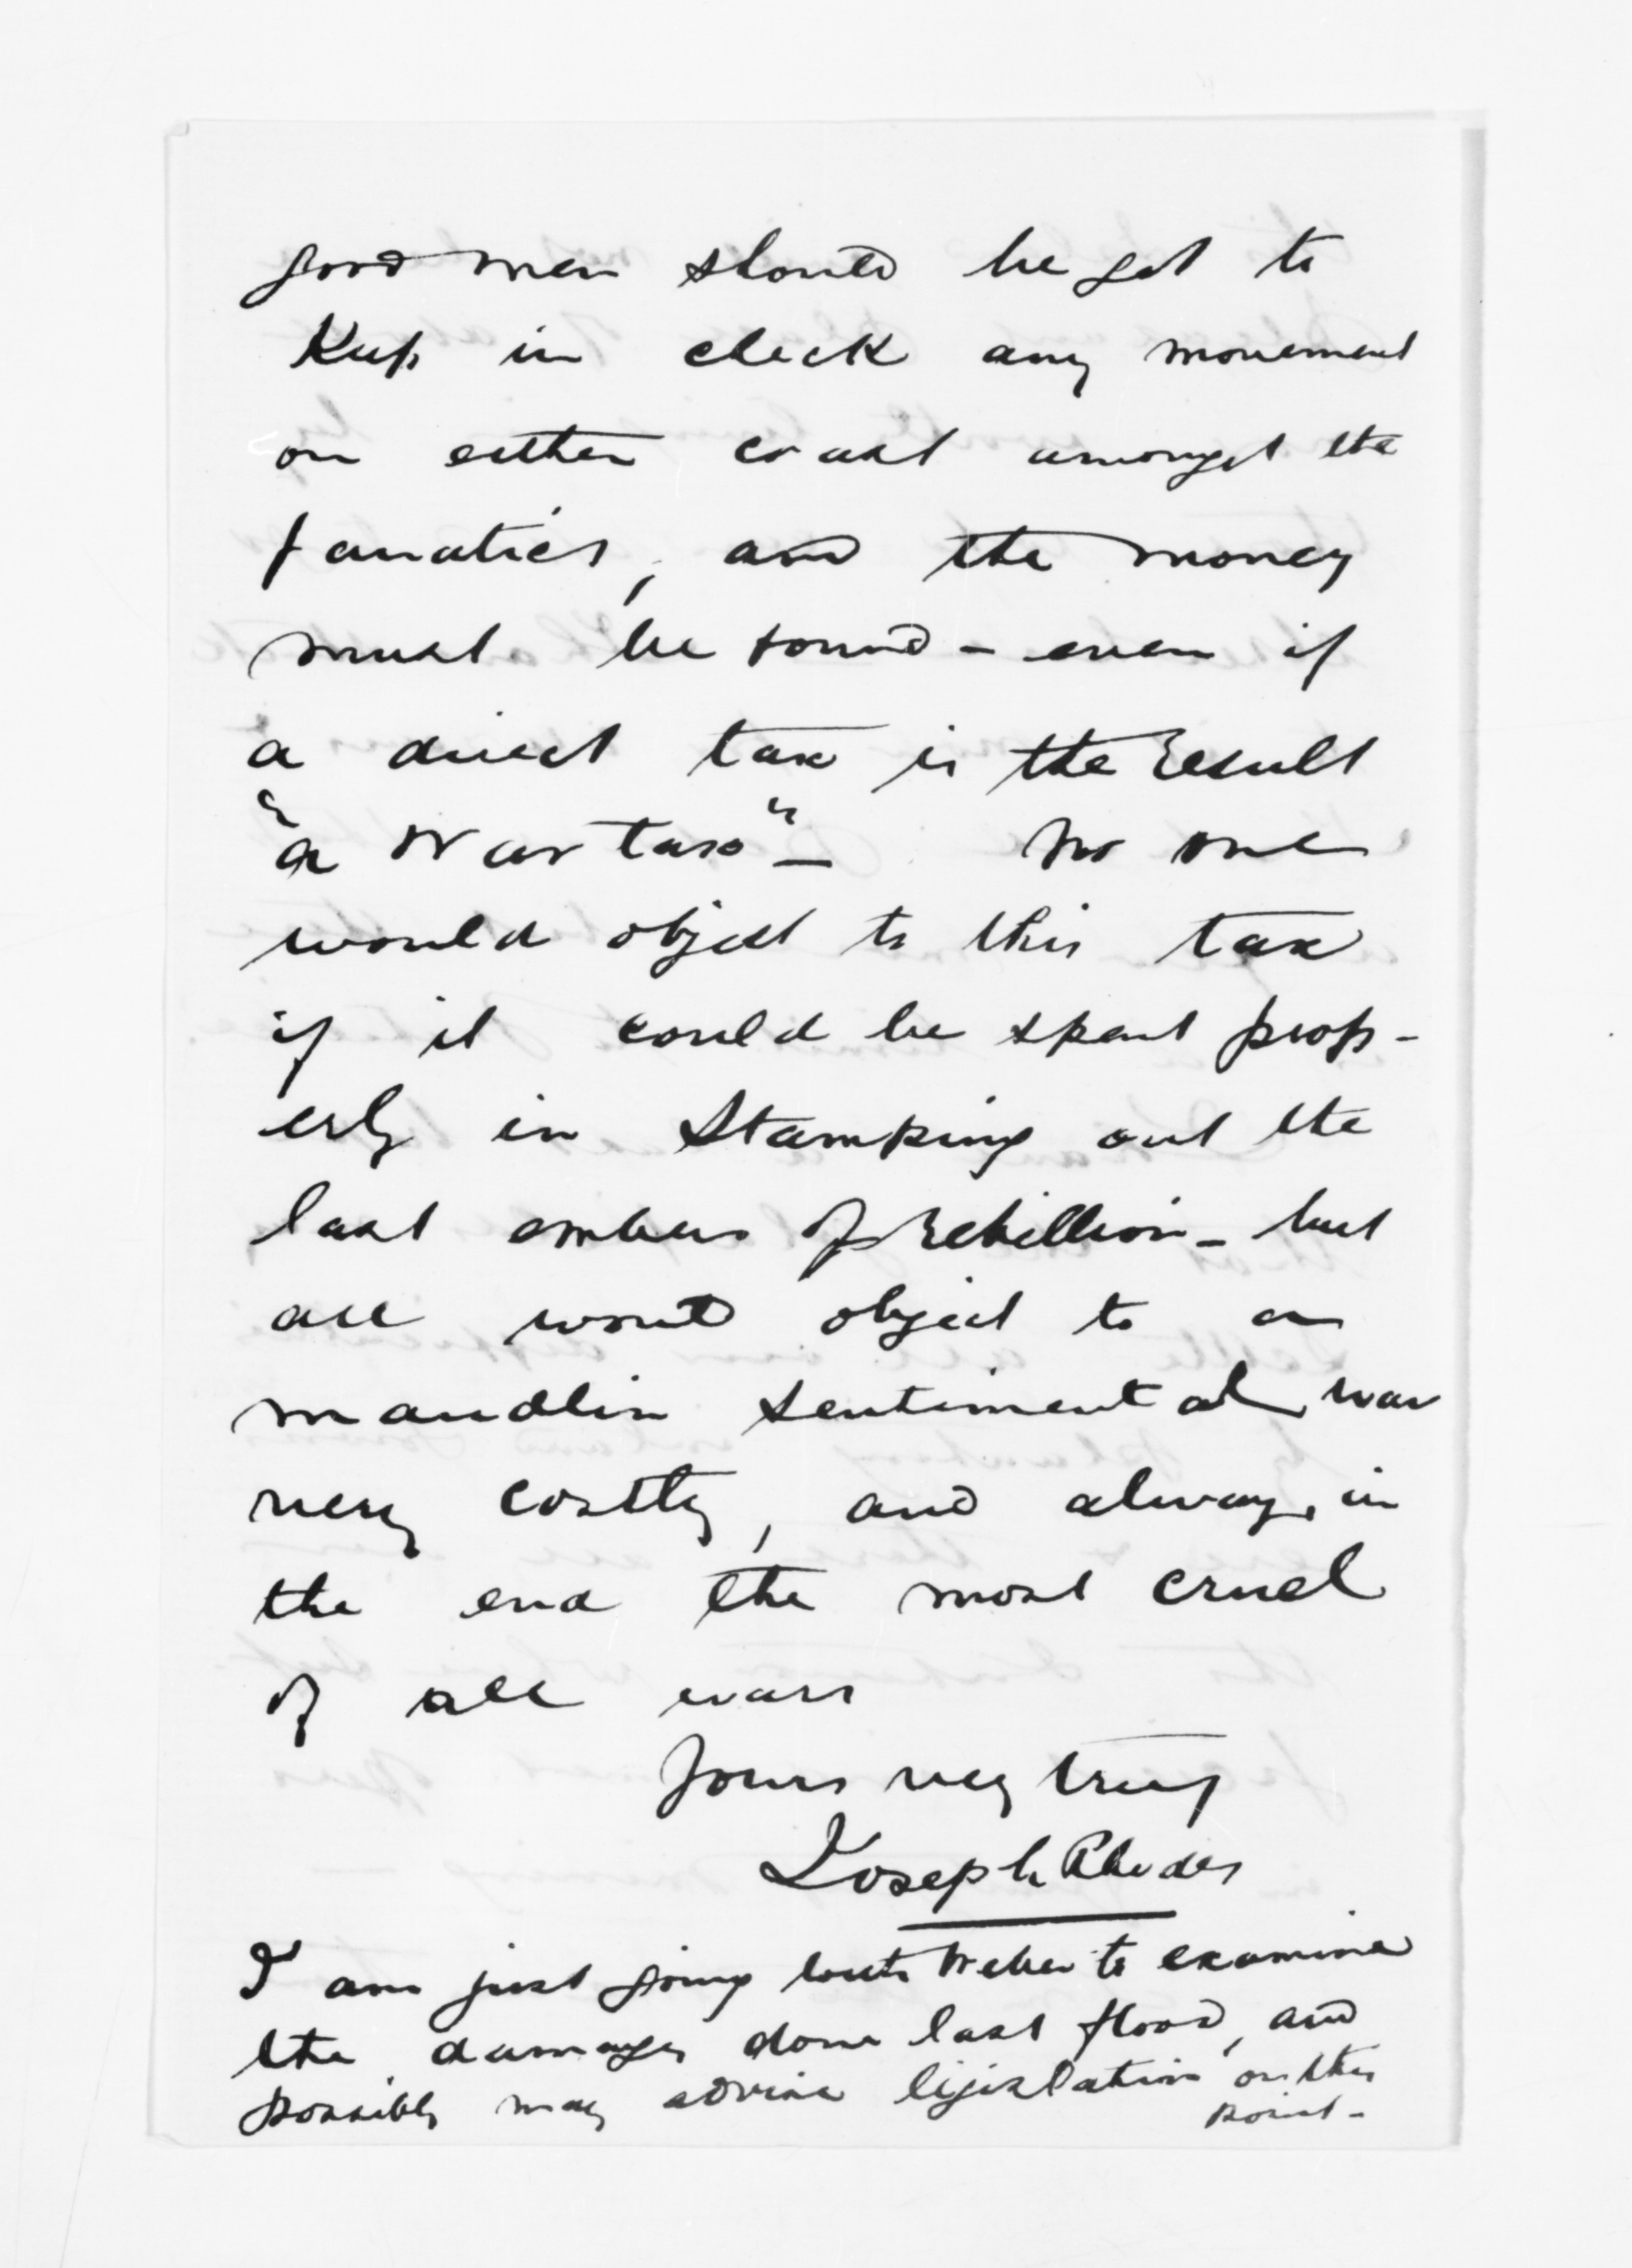 good men should be got to
Keep in check any movement
on either coast amongst the
fanatics, and the money
must be found - even if
a direct tax is the result
"a War tax" - No one
would object to this tax
if it could be spent prop-
erly in Stamping out the
last embers of Rebellion - but
all would object to a
maudlin sentimental war
very costly, and always in
the end the most cruel
of all wars
Yours very truly
Joseph Rhodes
I am just going to examine
the damages done last flood, and
possibly may advise legislation on this
point -